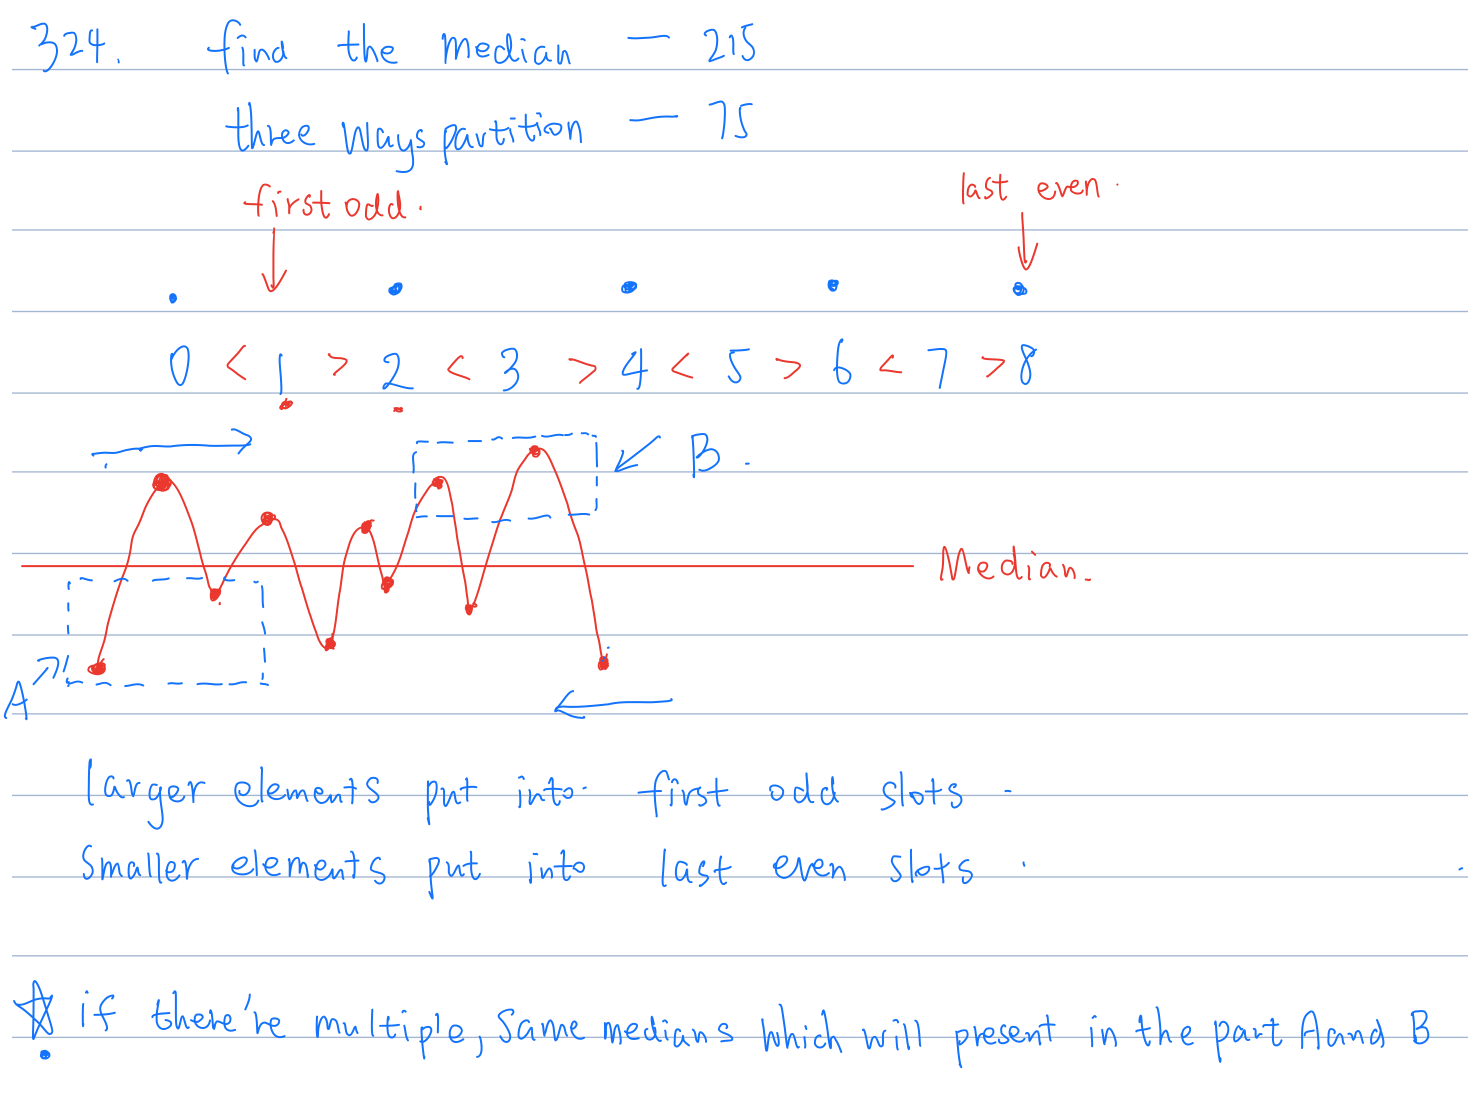 324. find the median — 215
three ways partition — 75
first odd.
last even.
0 < 1 > 2 < 3 > 4 < 5 > 6 < 7 > 8
B.
Median.
A
larger elements put into first odd slots.
Smaller elements put into last even slots.
☆ if there're multiple, same medians which will present in the part A and B